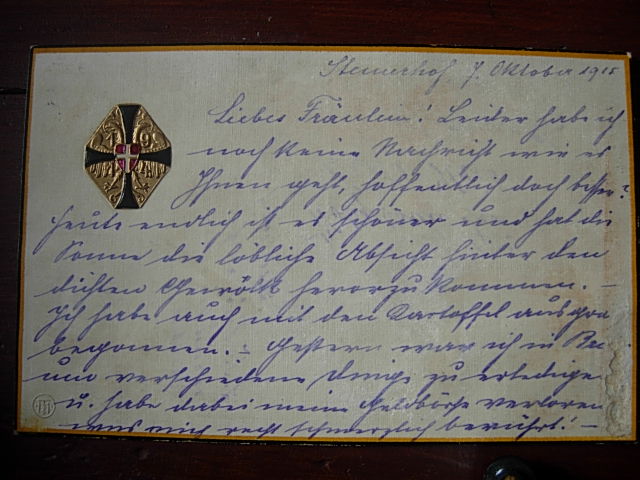 Steinerhof 7. Oktober 1915
Liebes Fräulein! Leider habe ich
noch keine Nachricht wie es
Ihnen geht, hoffentlich doch besser?
Heute endlich ist es schöner und hat die
Sonne die löbliche Absicht hinter den
dichten Gewölk hervorzukommen. –
Ich habe auch mit den Kartoffel ausgra
begonnen. – Gestern war ich in
um verschiedene Dinge zu erledigen
u. habe dabei meine Geldbörse verloren
was mich recht schmerzlich berührt! –